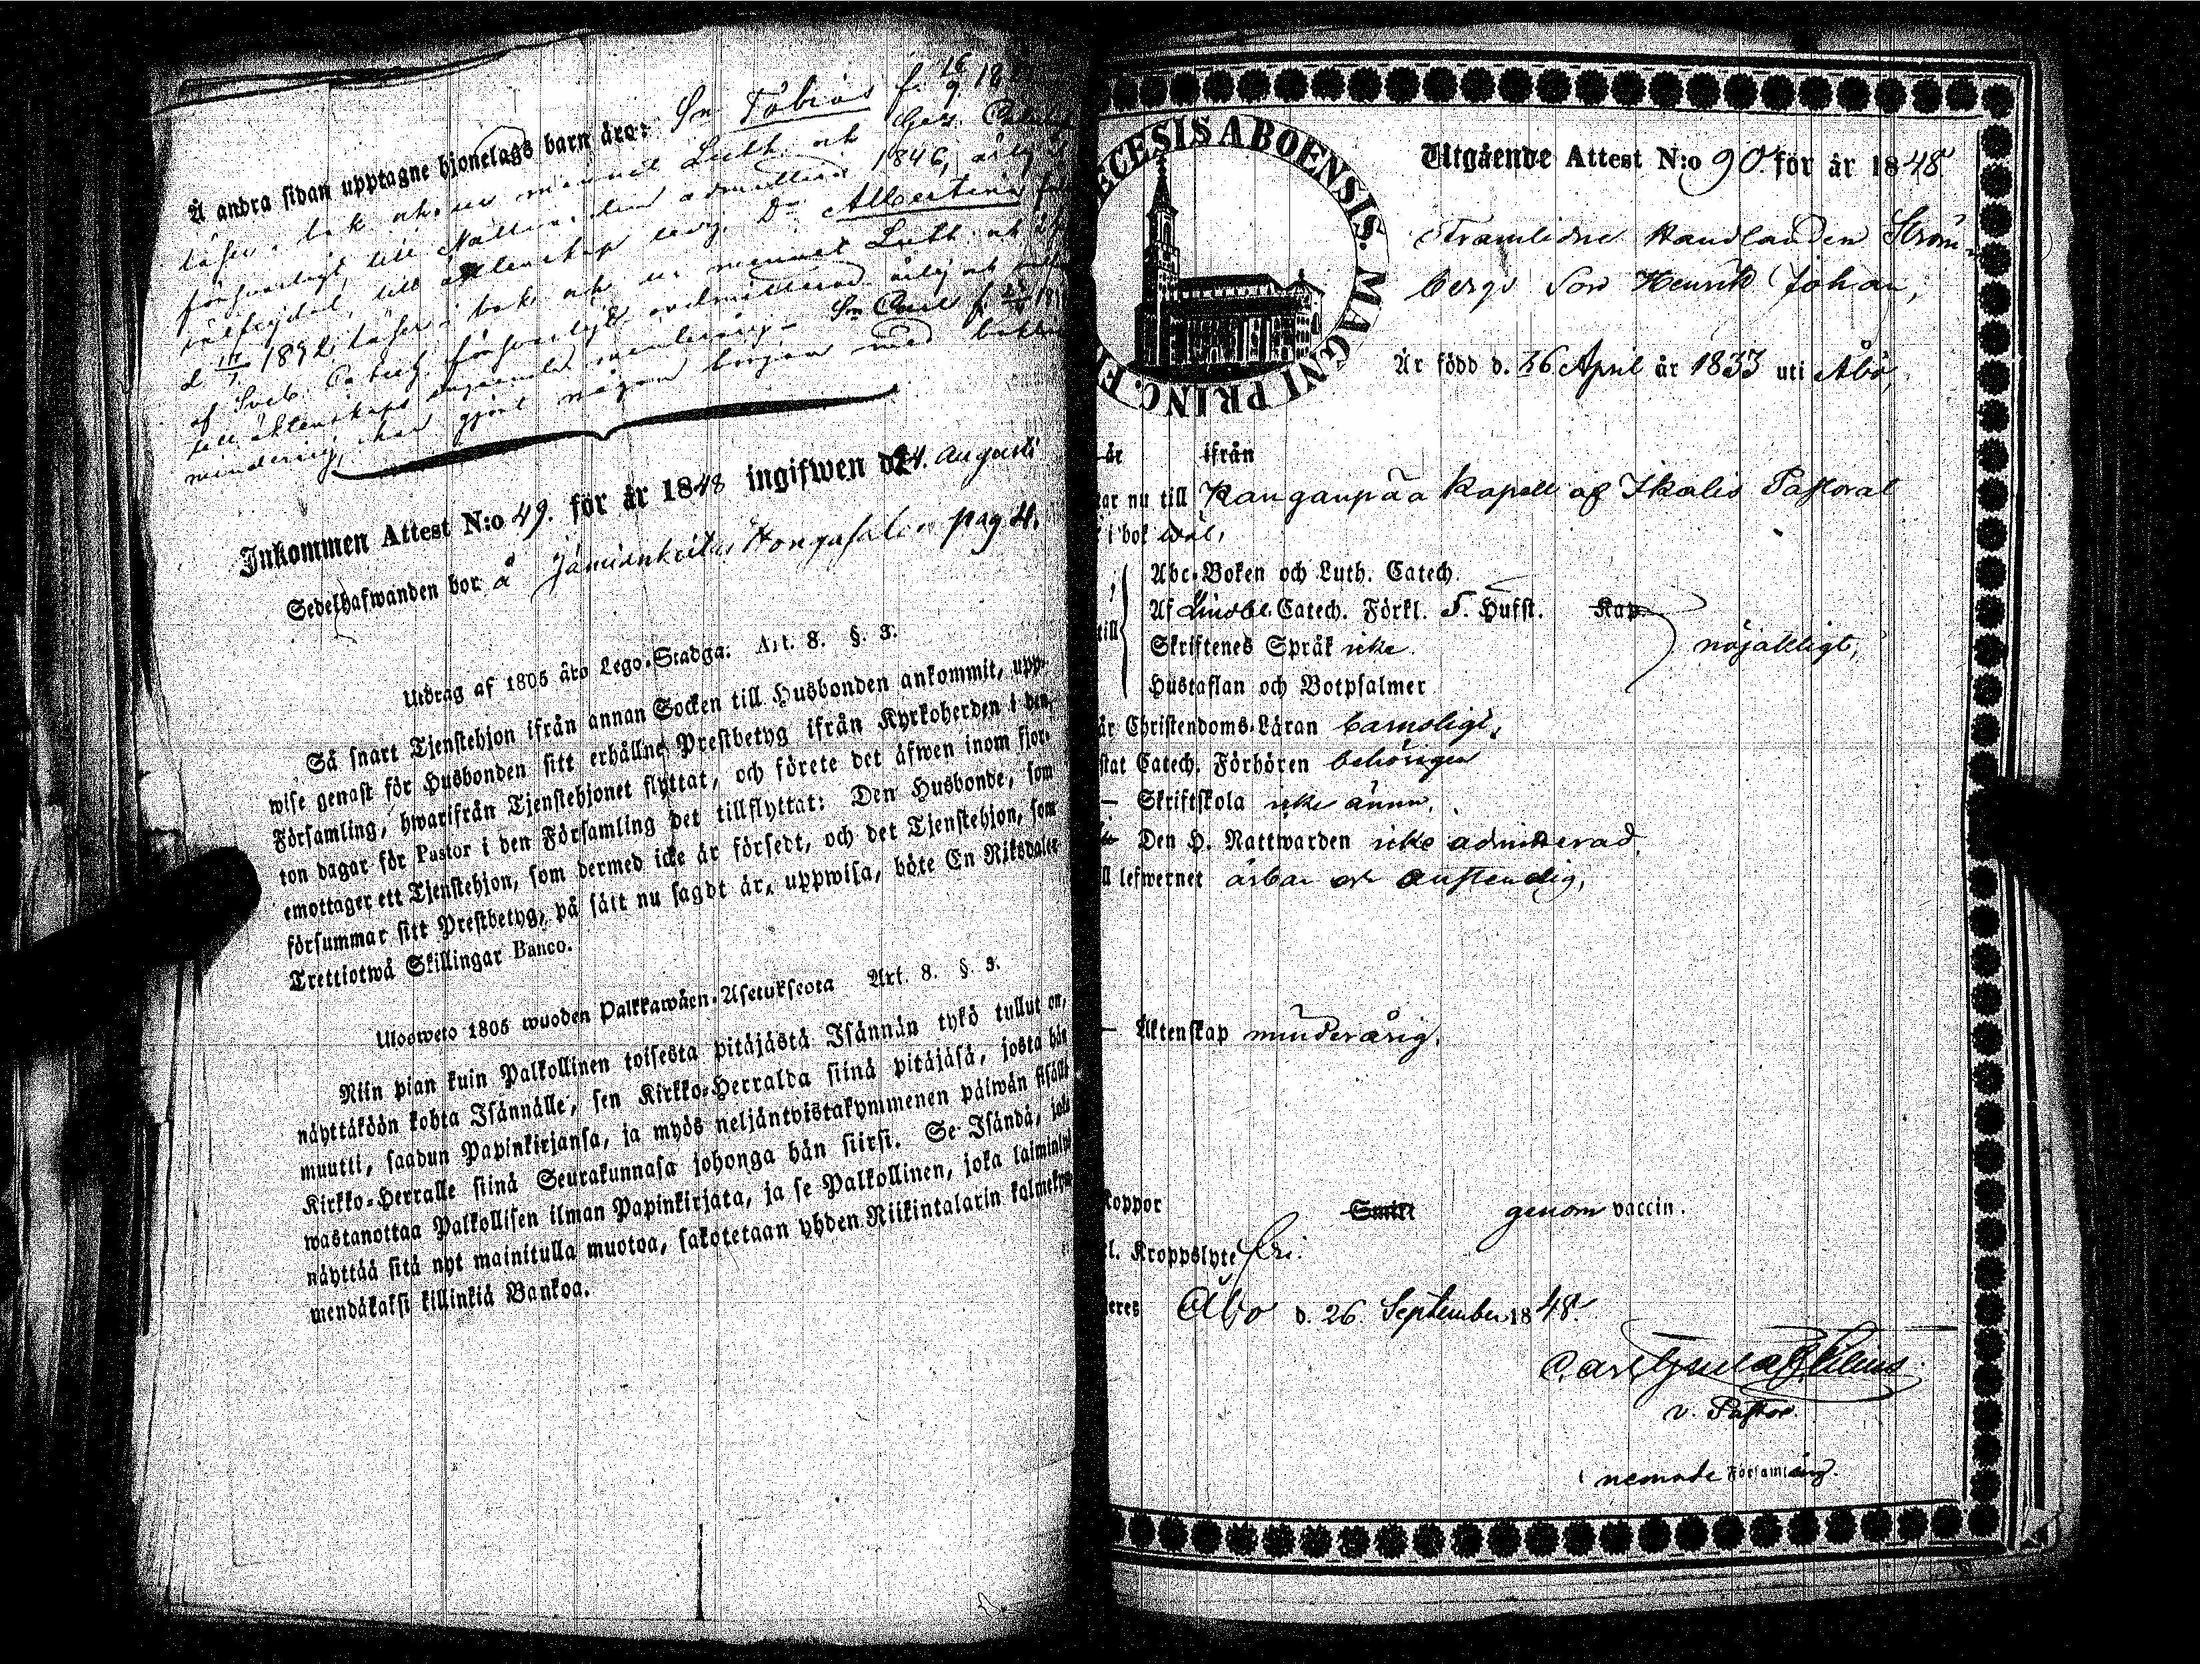 Å andra sidan upptagne hjonelags barn äro: Sn Tobias f. 16/9 18
läser i bok och ur minnet Luth. och
försvarligt, till Nattv. den admitterad 1846, ärlig
välfrejdad, till äktenskap ledig. Dr Albertina
d. 1832 läser i bok och ur minnet Luth. och
af Sveb. Catech. försvarligt, admitterad ärlig och
till äktenskaps ingående minderårig. Sn Carl f.
minderårig, har gjort någon början med
Inkommen Attest N:o 49. för år 1848 ingifwen d. 24. Augusti
Sedelhafwanden bor å Jämiänkeidas Hongasalo pag
Utdrag af 1805 års Lego-Stadga: Art. 8. §. 3.
Så snart Tjenstehjon ifrån annan Socken till Husbonden ankommit, upp-
wise genast för Husbonden sitt erhållne Prestbetyg ifrån Kyrkoherden i den
Församling, hwarifrån Tjenstehjonet flyttat, och förete det äfwen inom fjor-
ton dagar för Pastor i den Församling det tillflyttat: Den Husbonde, som
emottager ett Tjenstehjon, som dermed icke är försedt, och det Tjenstehjon, som
försummar sitt Prestbetyg, på sätt nu sagdt är, uppwisa, böte En Riksdaler
Trettiotwå Skillingar Banco.
Ulosweto 1805 wuoden Palkkawäen-Asetuksesta Art. 8. §. 3.
Niin pian kuin Palkollinen toisesta pitäjästä Isännän tykö tullut on,
näyttäköön kohta Isännälle, sen Kirkko-Herralda siinä pitäjäsä, josta hän
muutti, saadun Papinkirjansa, ja myös neljäntoistakymmenen päiwän sisällä
Kirkko-Herralle siinä Seurakunnasa johonga hän siirsi. Se Isändä, joka
wastanottaa Palkollisen ilman Papinkirjata, ja se Palkollinen, joka laiminlyö
näyttää sitä nyt mainitulla muotoa, sakotetaan yhden Riikintalarin kolmekym-
mendäkaksi killinkiä Bankoa.
ECESIS ABOENSIS. MAGNI PRINC. F
Utgående Attest N:o 90. för år 1848
Framlidne Handlanden Ström-
bergs Son Henrik Johan,
Är född d. 26 April år 1833 uti Åbo,
är ifrån
ar nu till Kangaupää Kapell af Ikalis Pastorat
i bok wäl,
Abc-Boken och Luth. Catech.
till Af Lindbl. Catech. Förkl. S. Husst. Kap
Skriftenes Språk icke nöjaktligt,
Hustaflan och Botpsalmer
är Christendoms-Läran barnsligt,
stat Catech. Förhören behörigen
— Skriftskola icke ännu,
Den H. Nattwarden icke admitterad,
ll lefwernet ärbar och anständig,
— Äktenskap minderårig.
koppor Smitt genom vaccin.
l. Kroppslyte fri.
eres Åbo d. 26. September 1848.
Carl
v. Pastor.
i nemnde Församling.